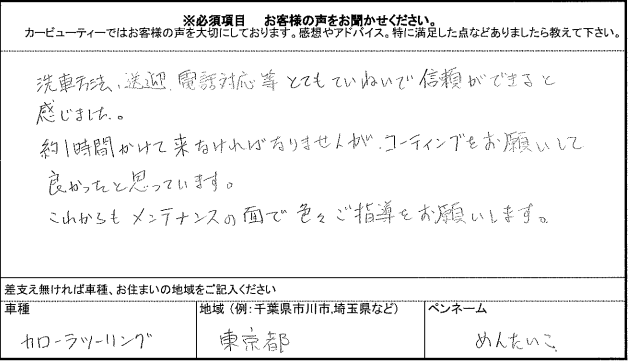 ※必須項目　お客様の声をお聞かせください。
カービューティーではお客様の声を大切にしております。感想やアドバイス。特に満足した点などありましたら教えて下さい。
洗車方法、送迎、電話対応等とてもていねいで信頼ができると
感じました。
約1時間かけて来なければなりませんが、コーティングをお願いして
良かったと思っています。
これからもメンテナンスの面で色々ご指導をお願いします。
差支え無ければ車種、お住まいの地域をご記入ください
車種
地域（例：千葉県市川市,埼玉県など）
ペンネーム
カローラツーリング
東京都
めんたいこ